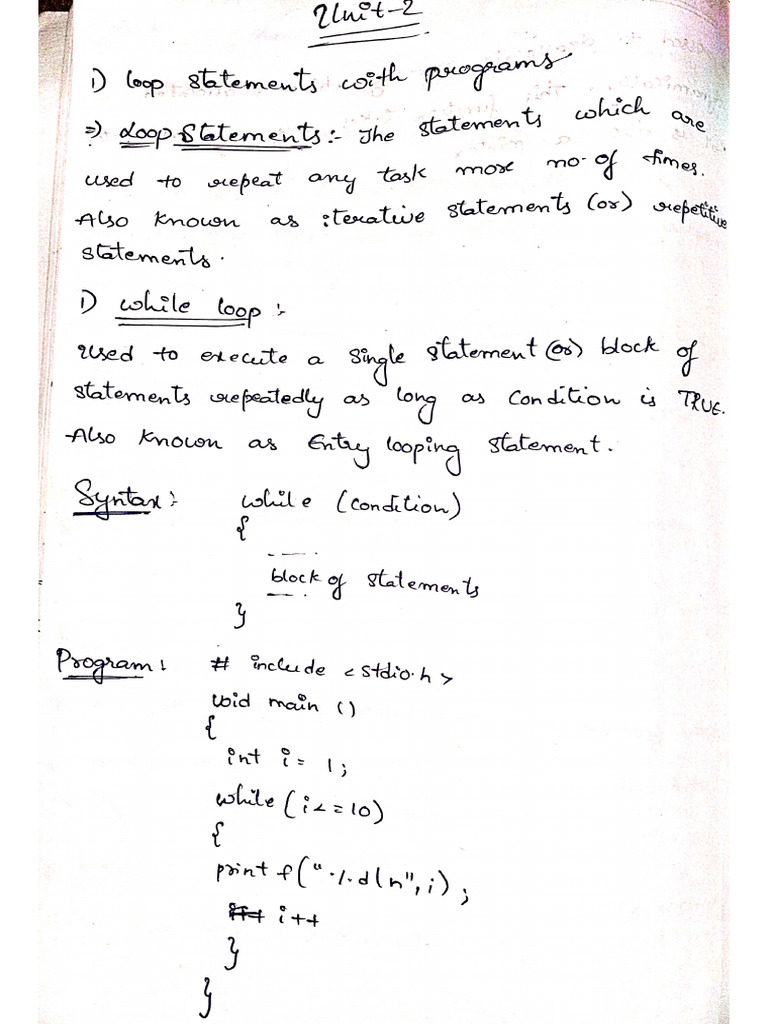 Unit-2
1) loop statements with programs
=> Loop Statements:- The statements which are
used to repeat any task more no. of times.
Also known as iterative statements (or) repetitive
statements.
1) while loop :-
Used to execute a single statement (or) block of
statements repeatedly as long as condition is TRUE.
Also known as Entry looping statement.
Syntax :- while (condition)
{
block of statements
}
Program : # include <stdio.h>
void main ()
{
int i = 1;
while (i <= 10)
{
printf("%d\n", i);
i++
}
}